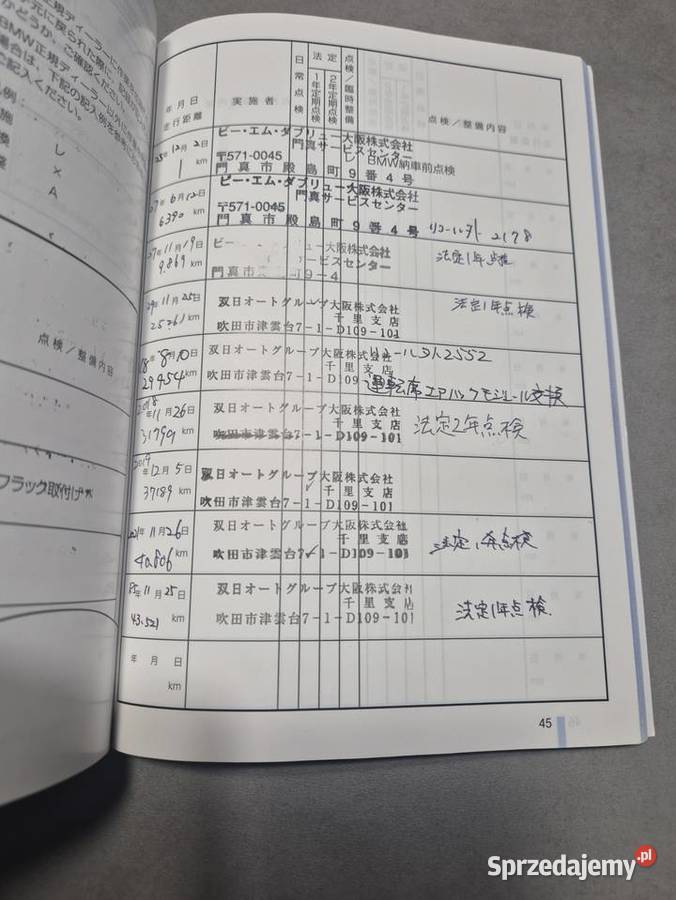 正規ディーラーに
BMW正規ディーラー以外
ご記入ください。
レ
×
A
点検／整備内容
フラック取付け
年 月 日
走行距離
実 施 者
日常点検
法 定
1年定期点検
2年定期点検
点検／臨時整備
点検／整備内容
年12月2日
1 km
ビー・エム・ダブリュー大阪株式会社
門真サービスセンター
〒571-0045
門真市殿島町9番4号
レ BMW納車前点検
年6月12日
6390 km
ビー・エム・ダブリュー大阪株式会社
門真サービスセンター
〒571-0045
門真市殿島町9番4号
リコール外-2178
年11月19日
9.869 km
ビー ュー大阪株式会社
ービスセンター
門真市 9-4
法定1年点検
年11月25日
25261 km
双日オートグループ大阪株式会社
千里支店
吹田市津雲台7-1-D109-101
法定1年点検
年8月10日
29454 km
双日オートグループ大阪株式会社
千里支店
吹田市津雲台7-1-D109
2552
運転席エアバッグモジュール交換
2018
年11月26日
31790 km
双日オートグループ大阪株式会社
千里支店
吹田市津雲台7-1-D109-101
法定2年点検
2019
年12月5日
37189 km
双日オートグループ大阪株式会社
千里支店
吹田市津雲台7-1-D109-101
2021年11月26日
40806 km
双日オートグループ大阪株式会社
千里支店
吹田市津雲台7-1-D109-101
法定1年点検
年11月25日
43.521 km
双日オートグループ大阪株式会社
千里支店
吹田市津雲台7-1-D109-101
法定1年点検
年 月 日
km
45
Sprzedajemy.pl